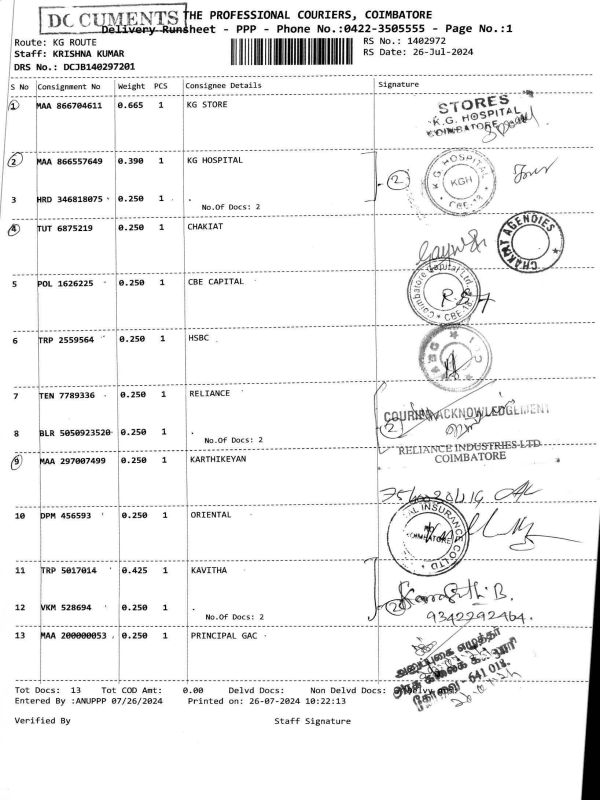 DOCUMENTS
THE PROFESSIONAL COURIERS, COIMBATORE
Delivery Runsheet - PPP - Phone No.:0422-3505555 - Page No.:1
Route: KG ROUTE
RS No.: 1402972
Staff: KRISHNA KUMAR
RS Date: 26-Jul-2024
DRS No.: DCJB140297201
S No Consignment No Weight PCS Consignee Details Signature
1 MAA 866704611 0.665 1 KG STORE
STORES
K.G. HOSPITAL
COIMBATORE
2 MAA 866557649 0.390 1 KG HOSPITAL
2
K G HOSPITAL
KGH
CBE-18
3 HRD 346818075 0.250 1 .
No.Of Docs: 2
4 TUT 6875219 0.250 1 CHAKIAT
CHAKIAT AGENCIES
5 POL 1626225 0.250 1 CBE CAPITAL
Coimbatore Capital Ltd.
CBE-18
6 TRP 2559564 0.250 1 HSBC
7 TEN 7789336 0.250 1 RELIANCE
COURIER ACKNOWLEDGEMENT
2
8 BLR 5050923520 0.250 1 .
No.Of Docs: 2
RELIANCE INDUSTRIES LTD
COIMBATORE
9 MAA 297007499 0.250 1 KARTHIKEYAN
10 DPM 456593 0.250 1 ORIENTAL
INSURANCE CO LTD
COIMBATORE
11 TRP 5017014 0.425 1 KAVITHA
12 VKM 528694 0.250 1 .
No.Of Docs: 2
2
B.
9342292464.
13 MAA 200000053 0.250 1 PRINCIPAL GAC
அரசு கலைக் கல்லூரி
கோவை - 641 018.
Tot Docs: 13 Tot COD Amt: 0.00 Delvd Docs: Non Delvd Docs:
Entered By :ANUPPP 07/26/2024 Printed on: 26-07-2024 10:22:13
Verified By Staff Signature